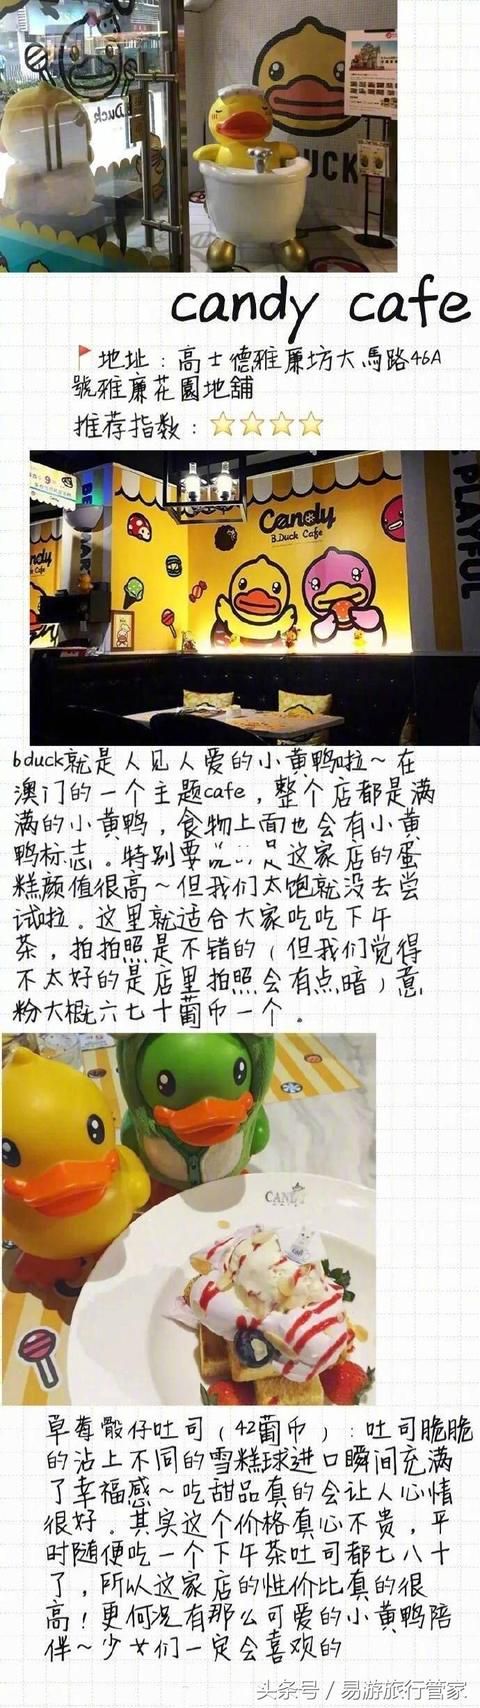 B.Duck
DUCK
candy cafe
地址：高士德雅廉坊大馬路46A
號雅廉花園地舖
推荐指数：⭐⭐⭐⭐
Candy
B.Duck Cafe
Candy
Duck Cafe
PLAYFUL
bduck就是人见人爱的小黄鸭啦~在
澳门的一个主题cafe，整个店都是满
满的小黄鸭，食物上面也会有小黄
鸭标志。特别要说的是这家店的蛋
糕颜值很高~但我们太饱就没去尝
试啦。这里就适合大家吃吃下午
茶，拍拍照是不错的（但我们觉得
不太好的是店里拍照会有点暗）意
粉大概六七十葡币一个。
CANDY
草莓骰仔吐司（42葡币）：吐司脆脆
的沾上不同的雪糕球进口瞬间充满
了幸福感~吃甜品真的会让人心情
很好。其实这个价格真心不贵，平
时随便吃一个下午茶吐司都七八十
了，所以这家店的性价比真的很
高！更何况有那么可爱的小黄鸭陪
伴~少女们一定会喜欢的
头条号／易游旅行管家